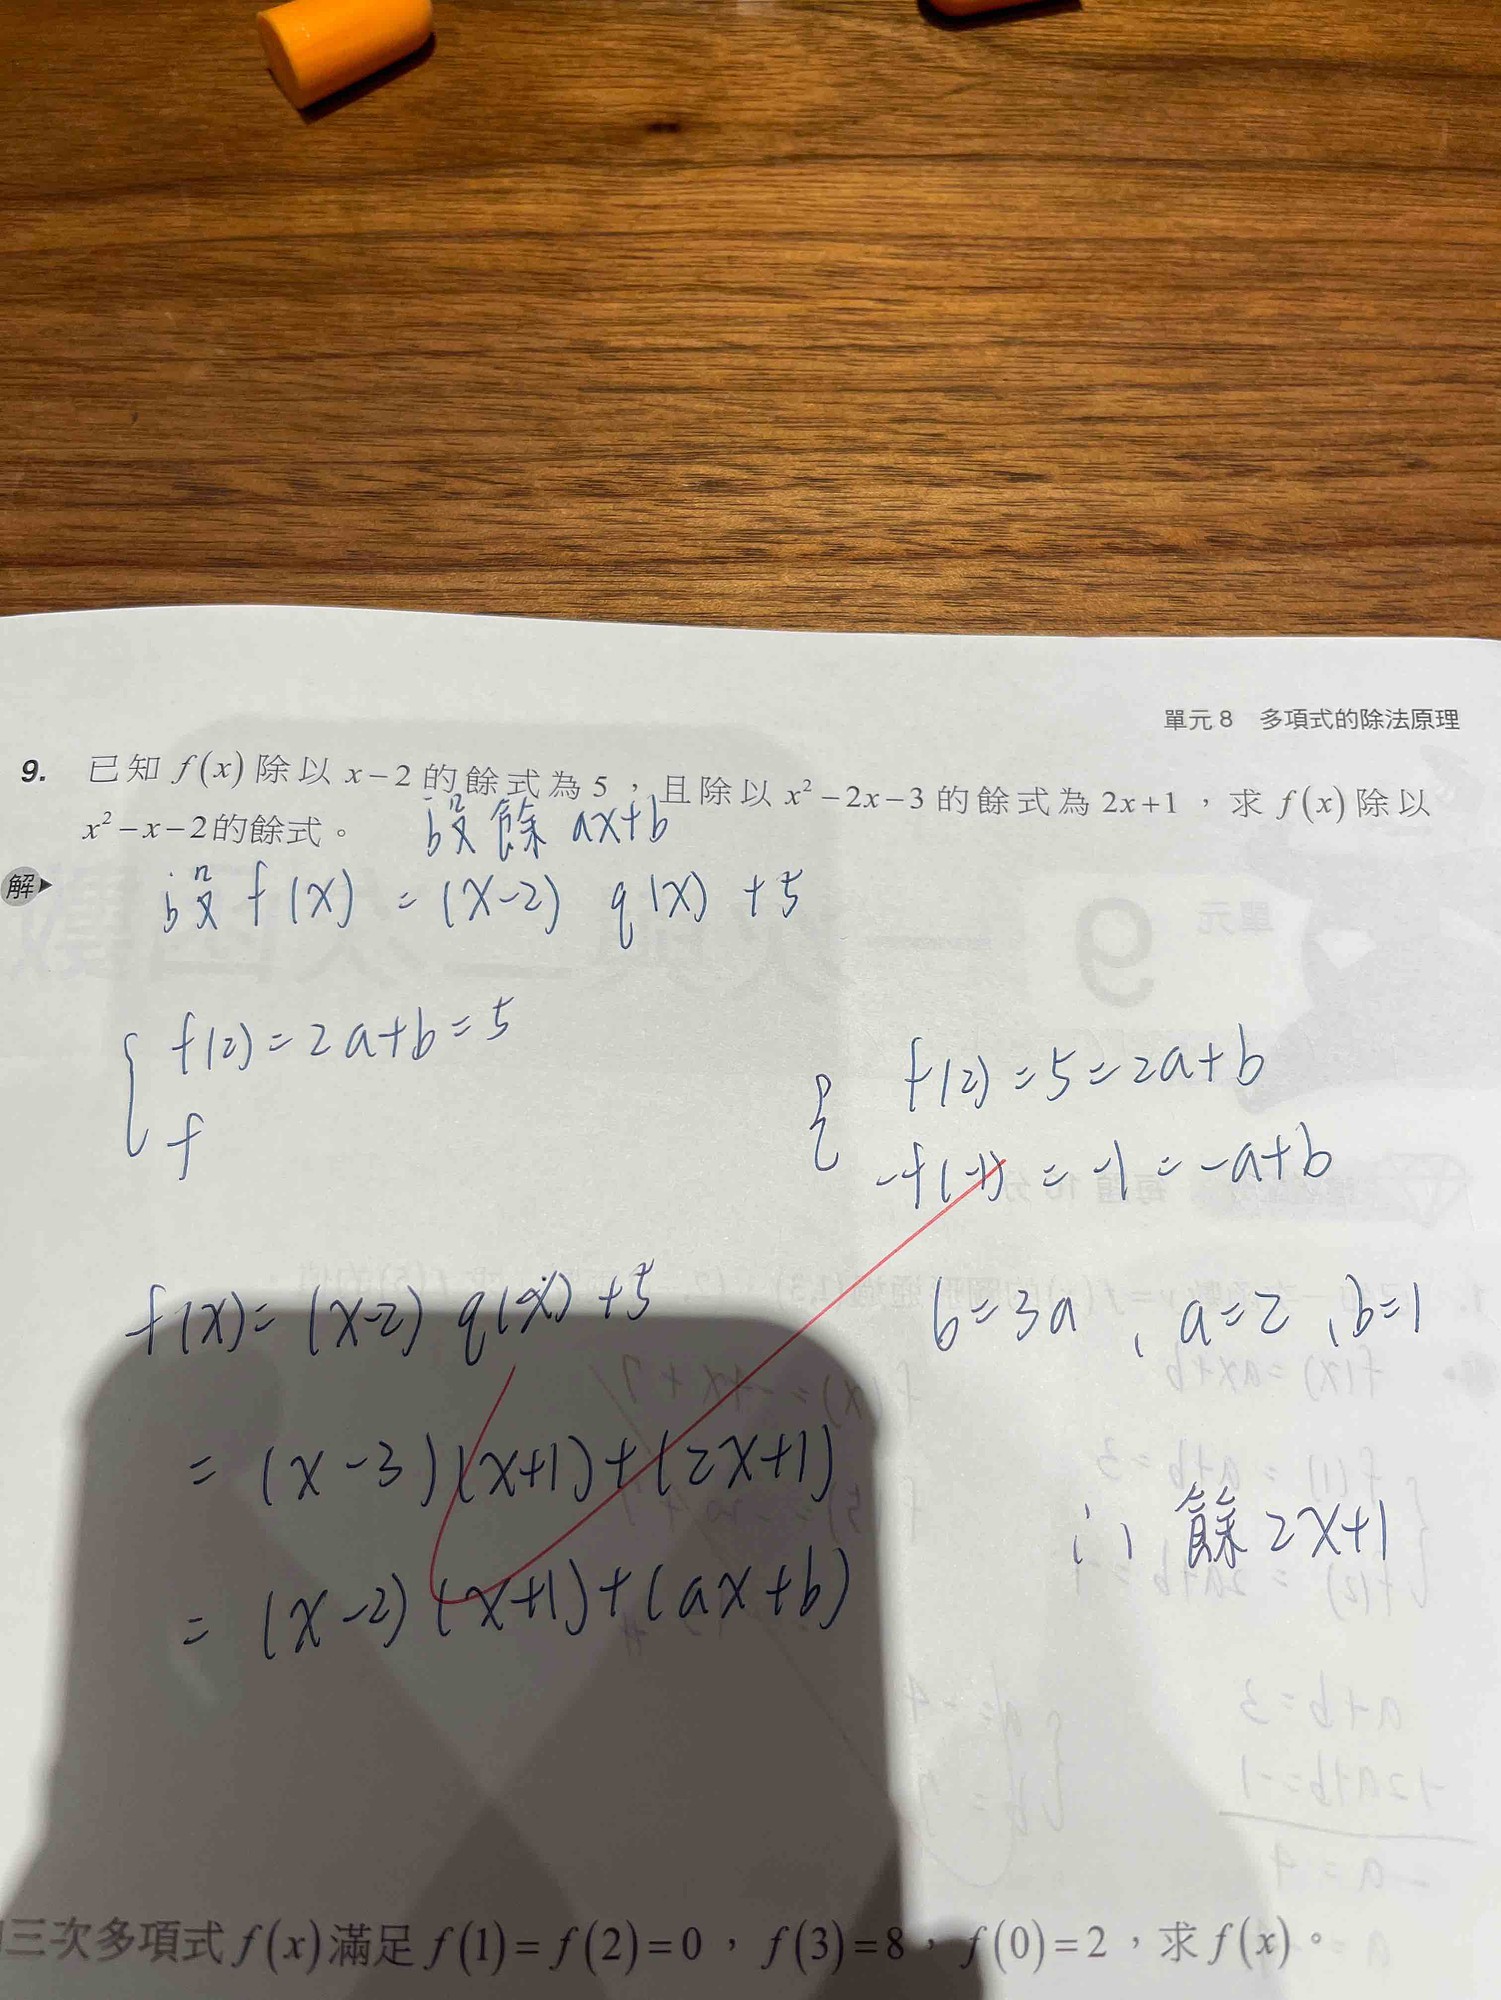 單元8 多項式的除法原理
9. 已知 f(x) 除以 x-2 的餘式為 5，且除以 x²-2x-3 的餘式為 2x+1，求 f(x) 除以
x²-x-2 的餘式。
設餘 ax+b
解
設 f(x) = (x-2) q(x) +5
f(2) = 2a+b = 5
f
f(2) = 5 = 2a+b
-f(-1) = -1 = -a+b
f(x) = (x-2) q(x) +5
b=3a , a=2 , b=1
= (x-3)(x+1)+(2x+1)
餘 2x+1
= (x-2)(x+1)+(ax+b)
三次多項式 f(x) 滿足 f(1)=f(2)=0，f(3)=8，f(0)=2，求 f(x)。